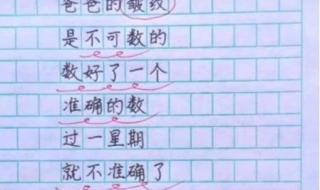 爸爸的皱纹
是不可数的
数好了一个
准确的数
过一星期
就不准确了